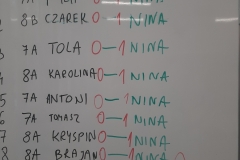 2 8B CZAREK 0-1 NINA
3 7A TOLA 0-1 NINA
4 8A KAROLINA 0-1 NINA
5 7A ANTONI 0-1 NINA
6 7A TOMASZ 0-1 NINA
7 8A KRYSPIN 0-1 NINA
8 8A BRAJAN 1 NINA